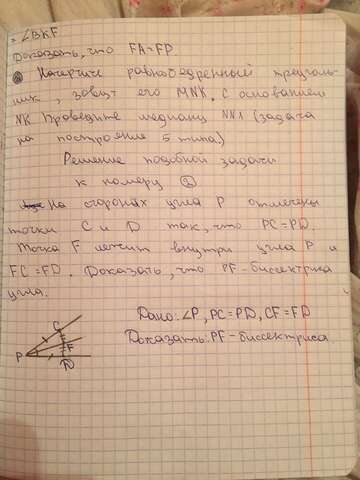 = ∠BKF
Доказать, что FA=FD.
③ Начертите равнобедренный треуголь
ник, зовут его MNK, с основанием
NK Проведите медиану NN1 (задача
на построение 5 типа.)
Решение подобной задачи
к номеру ②
На сторонах угла P отмечены
точки C и D так, что PC=PD.
Точка F лежит внутри угла P и
FC=FD. Доказать, что PF-биссектриса
угла.
Дано: ∠P, PC=PD, CF=FD
Доказать: PF-биссектриса
C
F
P
D